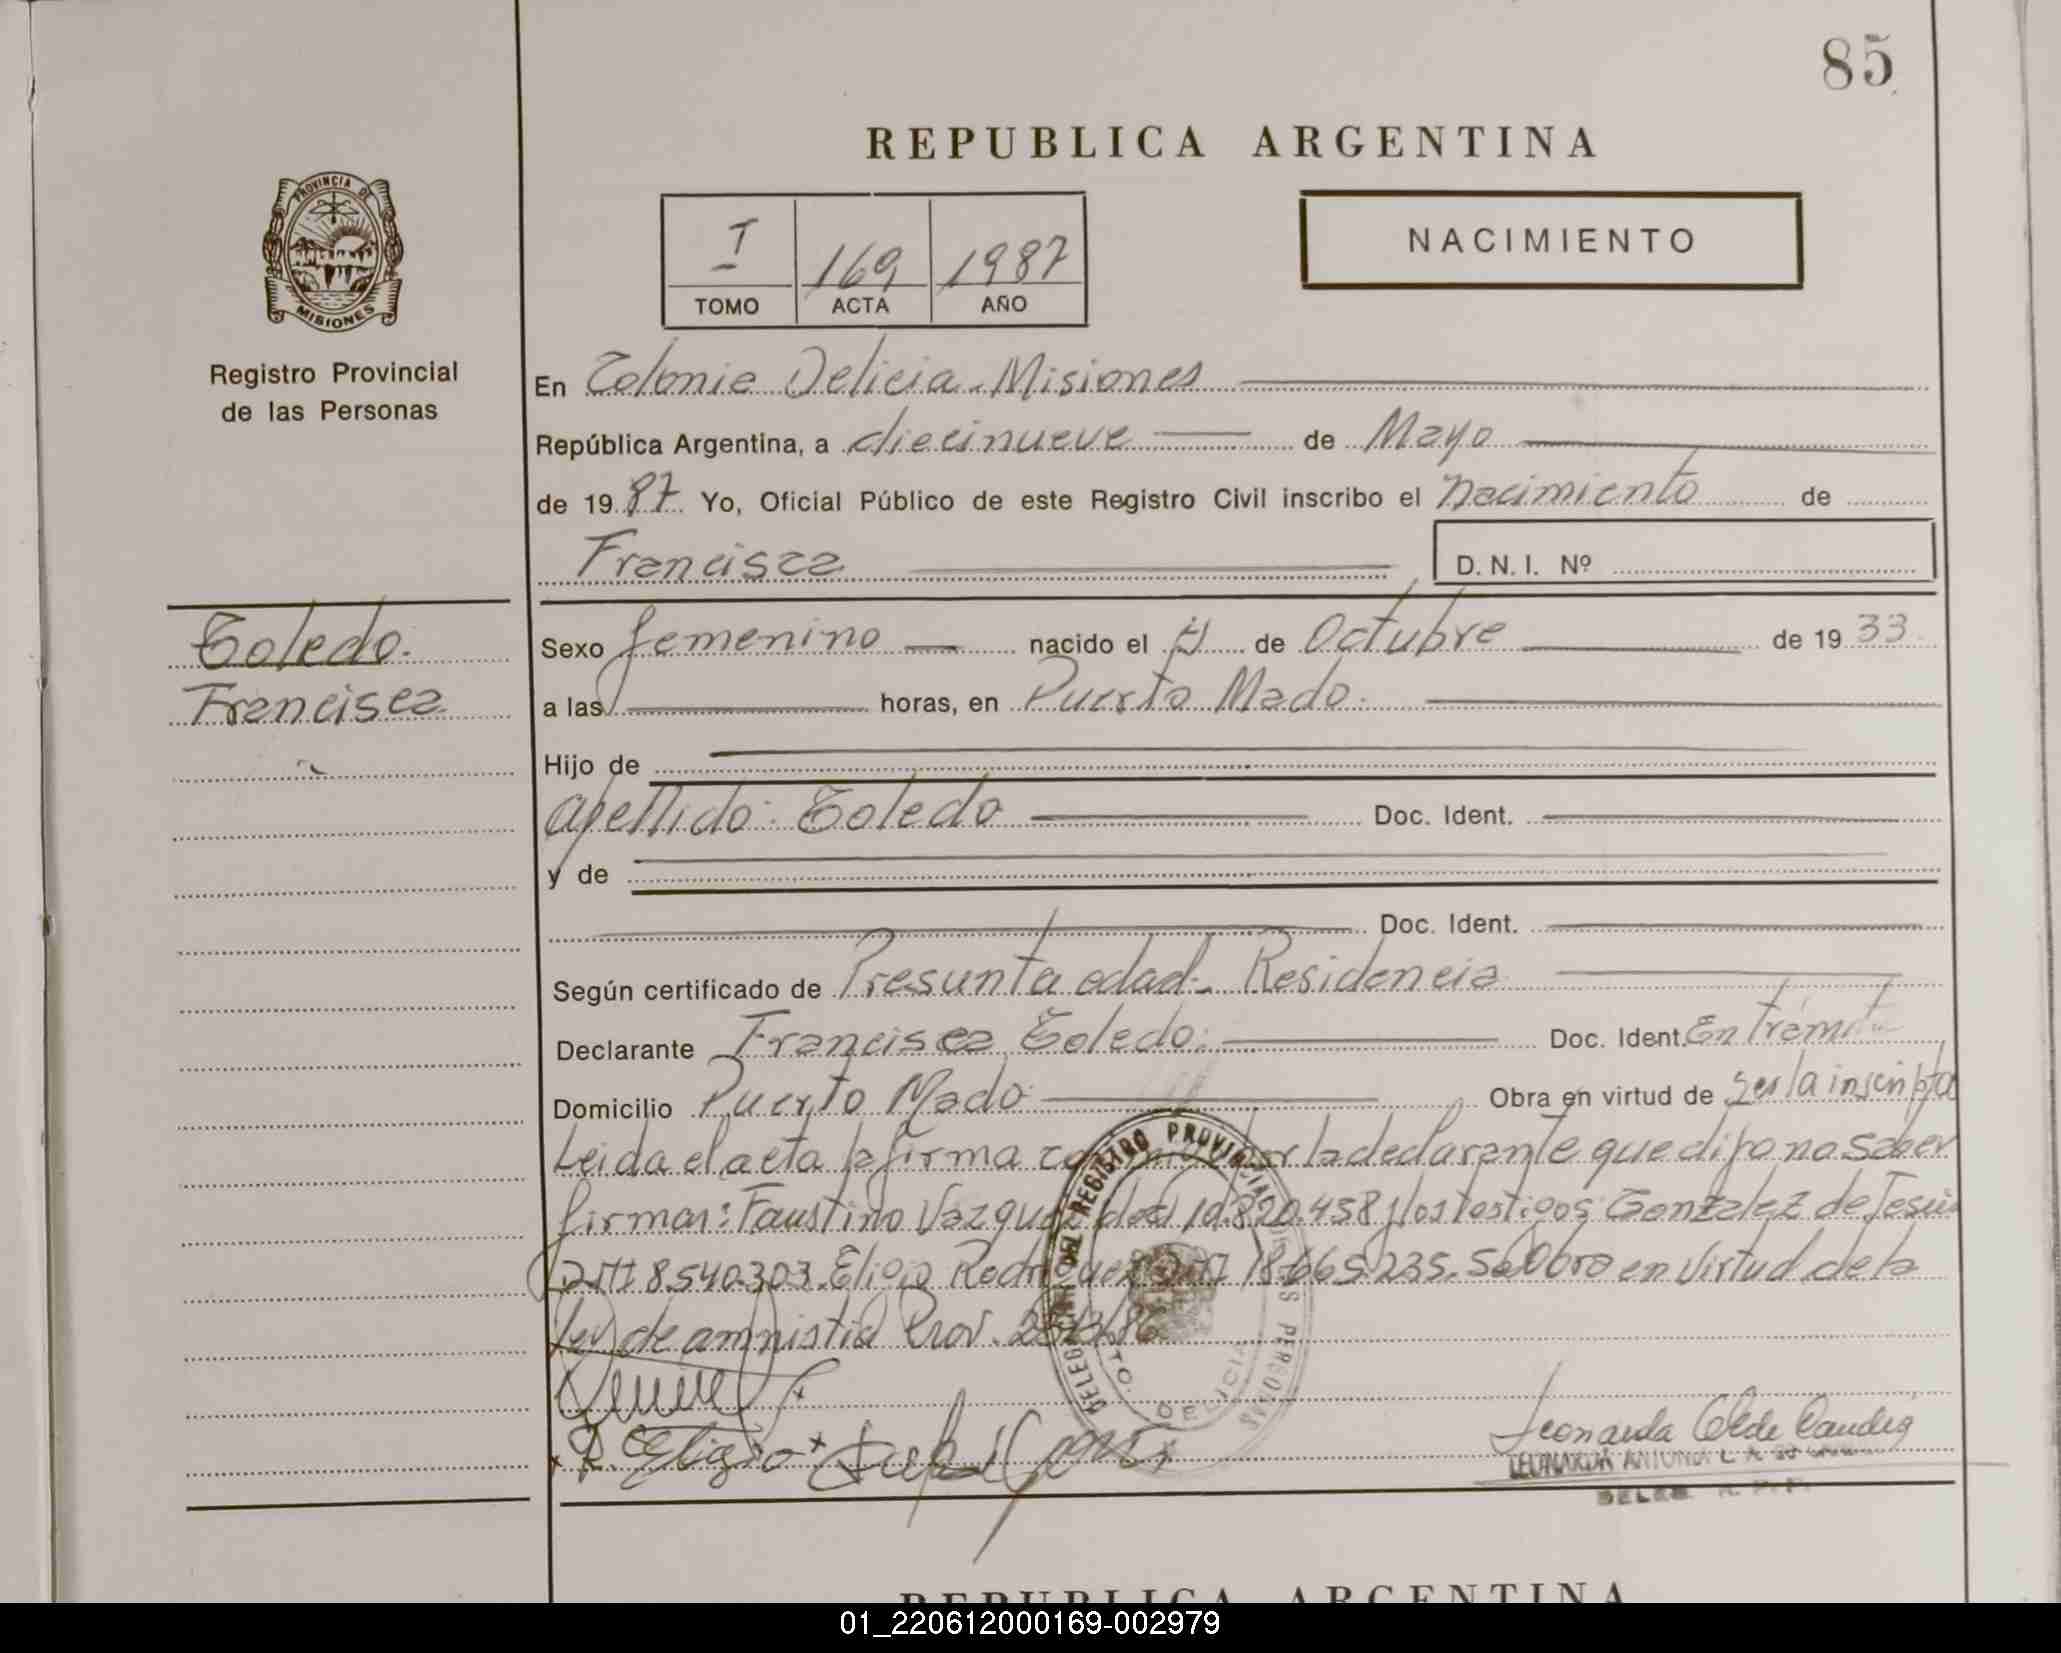 85
REPUBLICA ARGENTINA
PROVINCIA DE
MISIONES
Registro Provincial
de las Personas
I 169 1987
TOMO ACTA AÑO
NACIMIENTO
En Colonia Delicia - Misiones
República Argentina, a diecinueve de Mayo
de 1987 Yo, Oficial Público de este Registro Civil inscribo el Nacimiento de
Francisca D. N. I. Nº
Toledo.
Francisca
Sexo femenino nacido el 4 de Octubre de 1933
a las horas, en Puerto Mado.
Hijo de
Apellido: Toledo Doc. Ident.
y de
Doc. Ident.
Según certificado de Presunta edad - Residencia
Declarante Francisca Toledo. Doc. Ident. En trámite
Domicilio Puerto Mado. Obra en virtud de ser la inscripta
Leida el acta la firma por la declarante que dijo no saber
firmar: Faustino Vazquez 458 y los testigos: Gonzalez de Jesús
8.540.303. Eligio Rodriguez 18.665.235. Obra en virtud de la
ley de amnistia Prov.
DELEGACION DEL REGISTRO PROVINCIAL DE LAS PERSONAS
DELICIA
R. Eligio
Leonarda
LEONARDA ANTONIA
DELEG. R. P. P.
REPUBLICA ARGENTINA
01_220612000169-002979